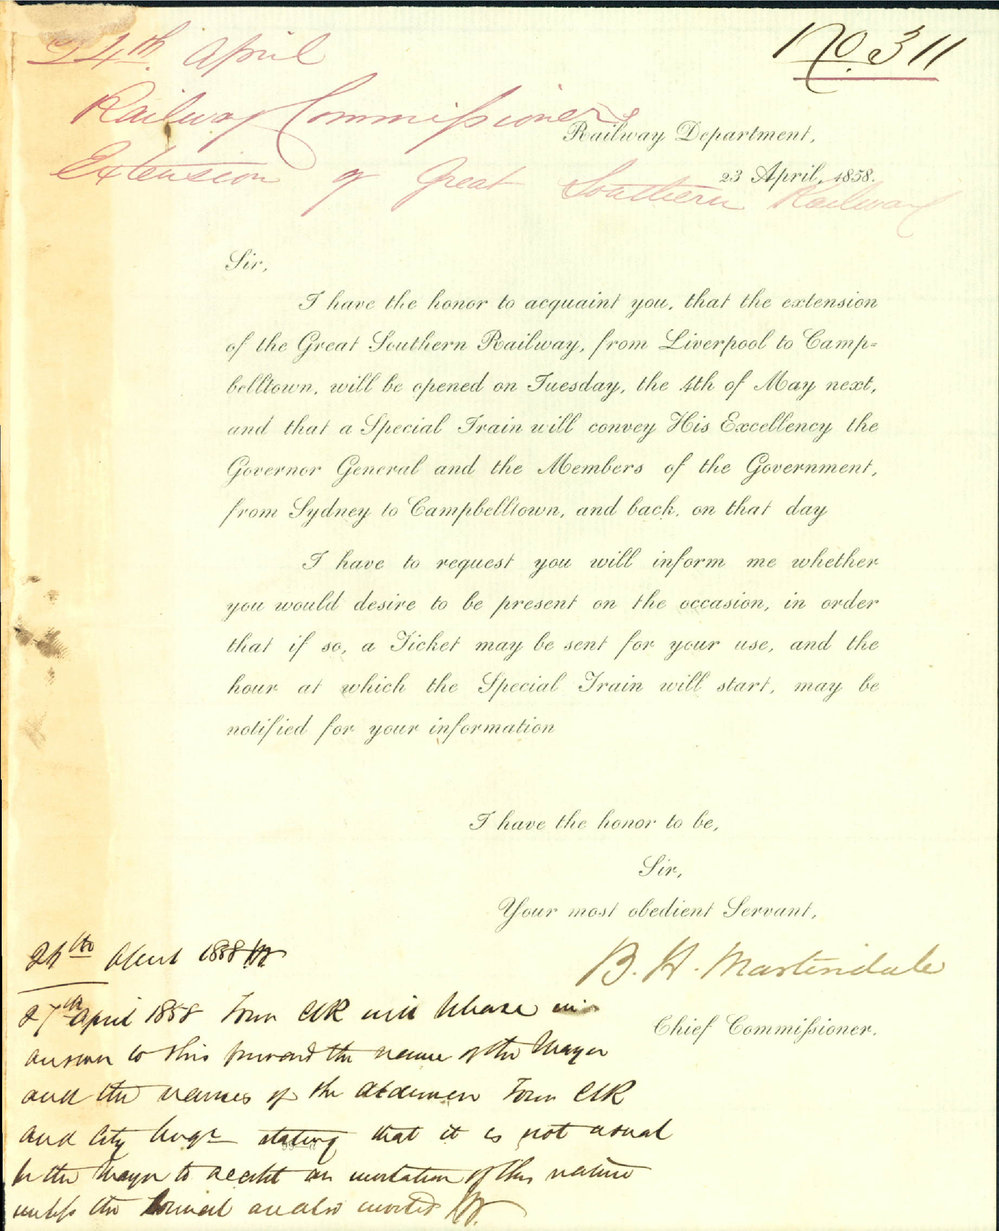 24th April
No. 311
Railway Commissioners
Extension of Great Southern Railway
Railway Department,
23 April, 1858.
Sir,
I have the honor to acquaint you, that the extension
of the Great Southern Railway, from Liverpool to Camp-
belltown, will be opened on Tuesday, the 4th of May next,
and that a Special Train will convey His Excellency the
Governor General and the Members of the Government,
from Sydney to Campbelltown, and back, on that day
I have to request you will inform me whether
you would desire to be present on the occasion, in order
that if so, a Ticket may be sent for your use, and the
hour at which the Special Train will start, may be
notified for your information
I have the honor to be,
Sir,
Your most obedient Servant,
B. H. Martindale
Chief Commissioner.
April 1858
27th April 1858 Town Clk will please in
answer to this forward the name of the Mayor
and the names of the Aldermen Town Clk
and City Engr stating that it is not usual
for the Mayor to accept an invitation of this nature
unless the Council are also invited